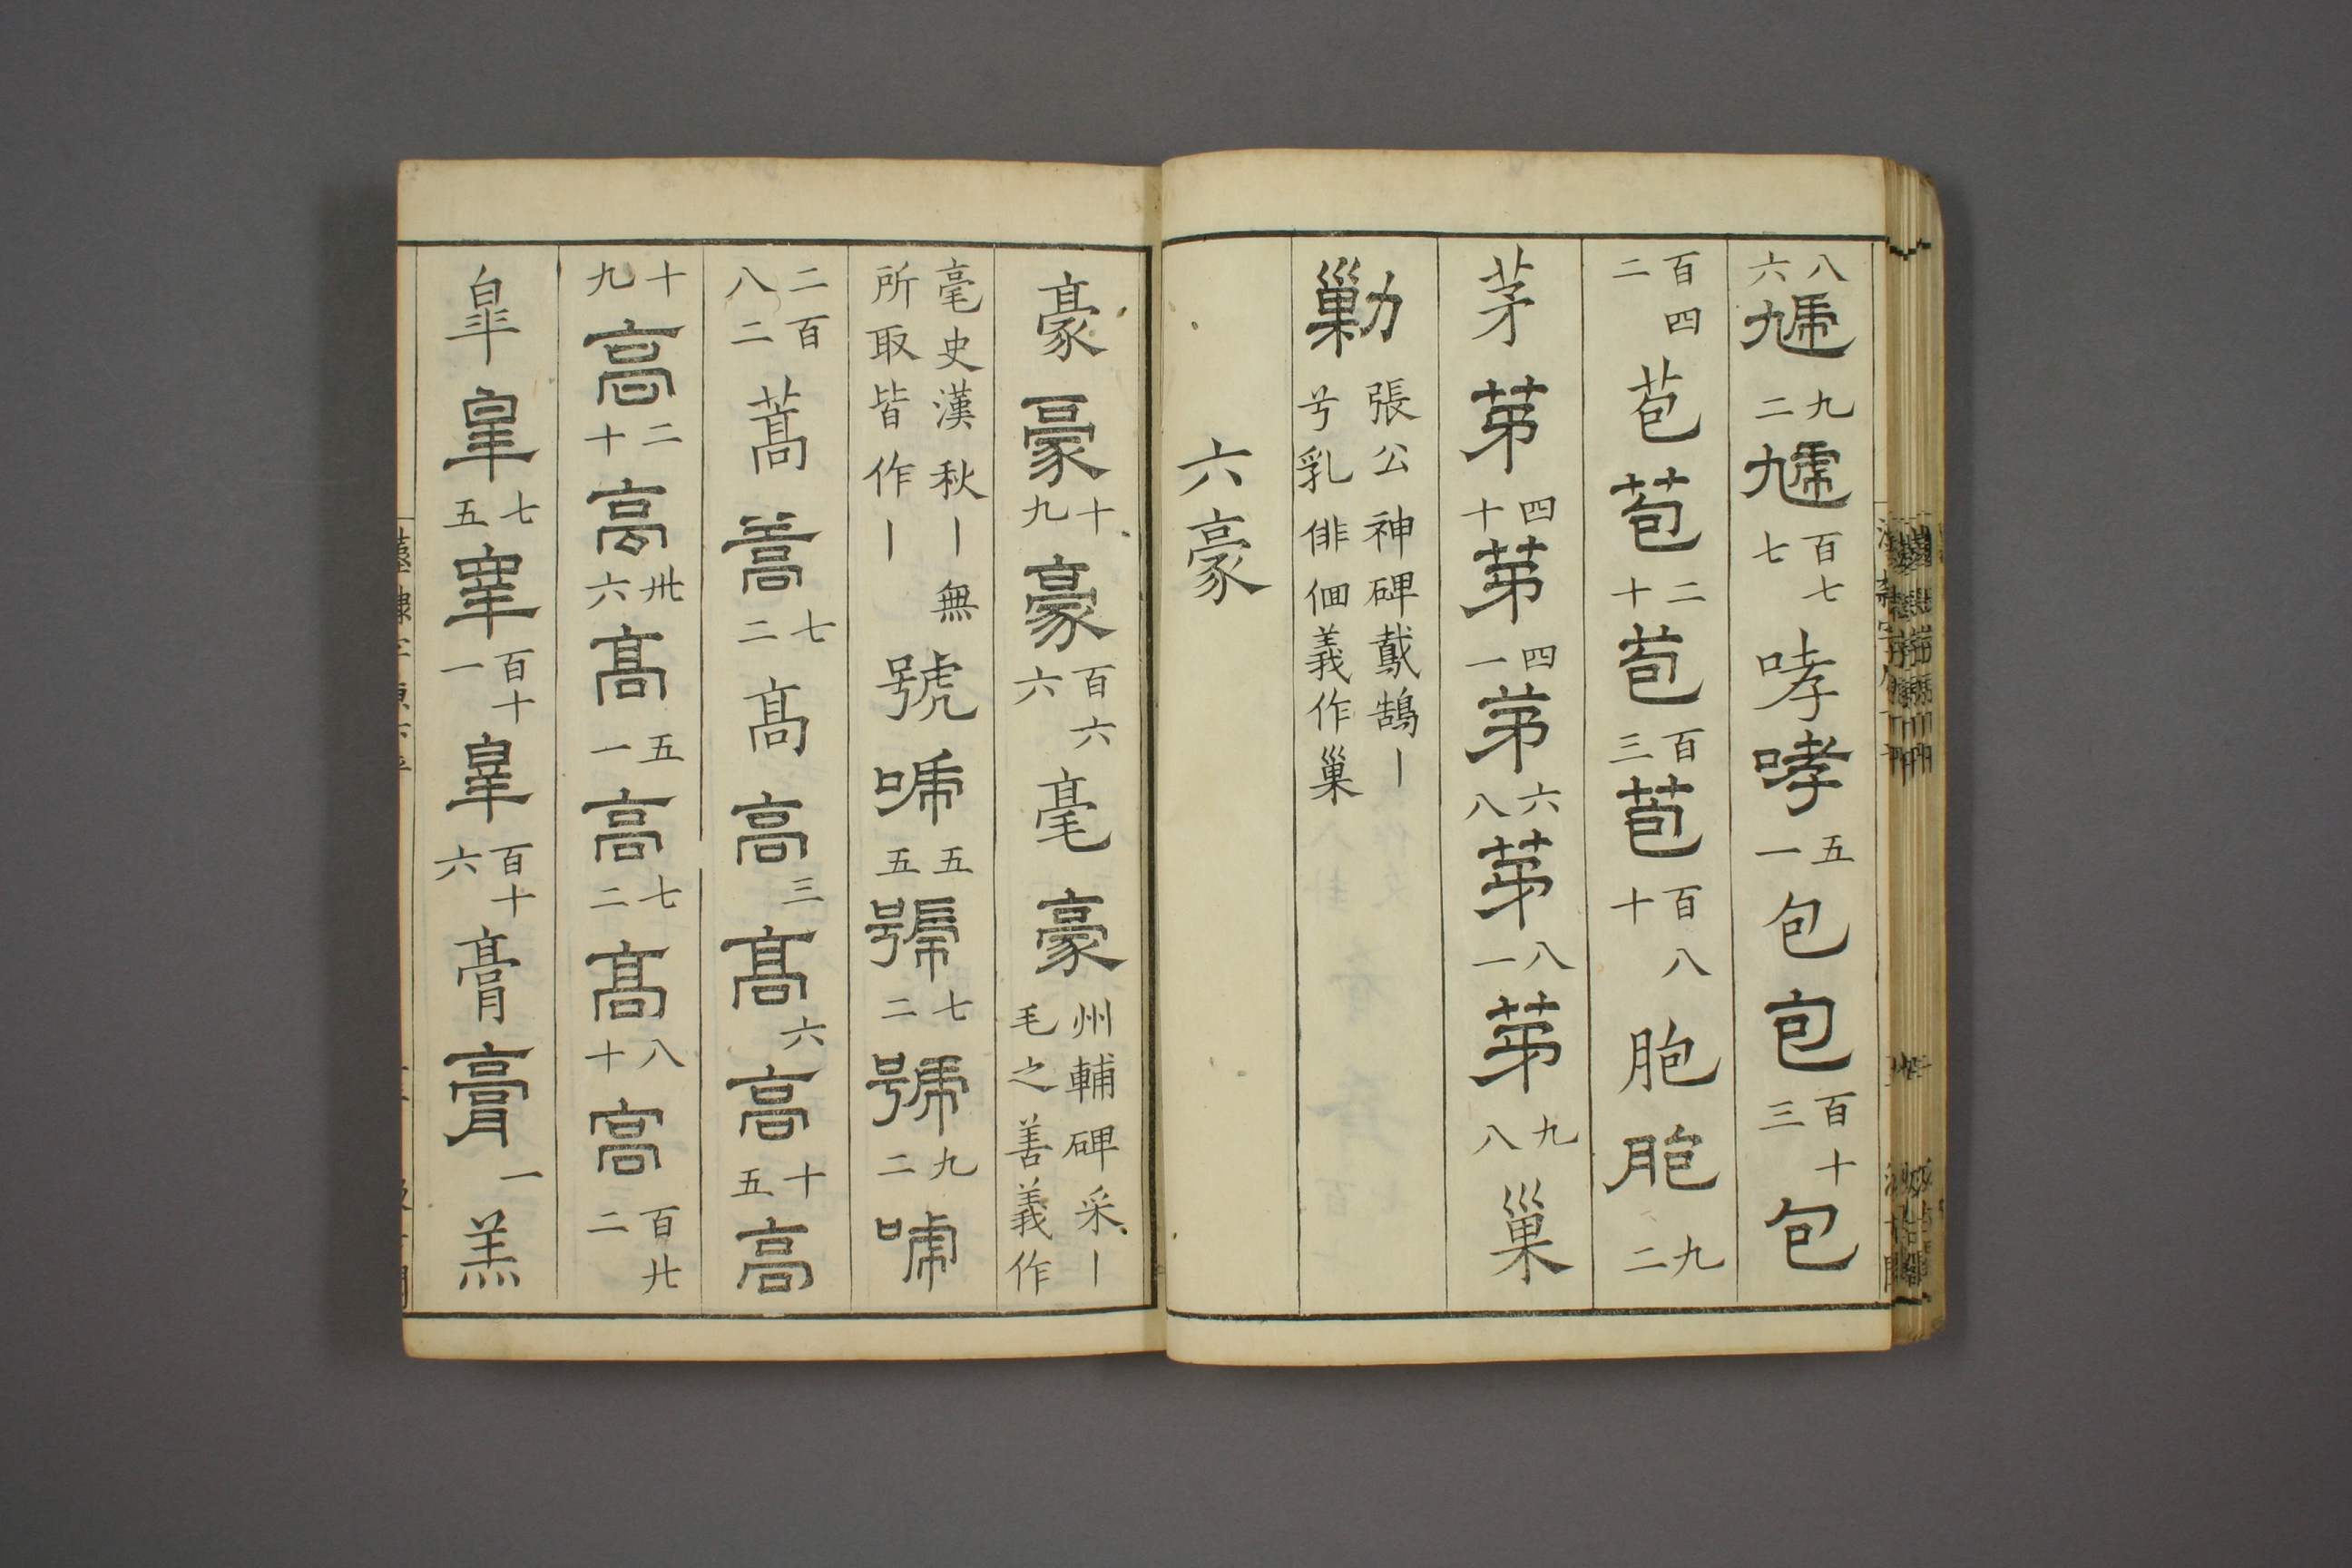 八六 九二 百七七 哮 哮 五一 包 包 百十三 包
百四二 苞 苞 二十 苞 百三 苞 百八十 胞 胞 九二
茅 茅 四十 茅 四一 茅 六八 茅 八一 茅 九八 巢
勦 張公神碑鸛鵠丨兮乳俳佪義作巢
六豪
豪 豪 十九 豪 百六六 毫 豪 州輔碑采丨毛之善義作
毫史漢秋丨無所取皆作丨 號 號 五五 號 七二 號 九二 號
二百八二 蒿 蒿 七二 高 高 三 高 六 高 十五 高
十九 高 二十 高 卅六 高 五一 高 七二 高 八十 高 百廿二
皐 皐 七五 皐 百十一 皐 百十六 膏 膏 一 羔